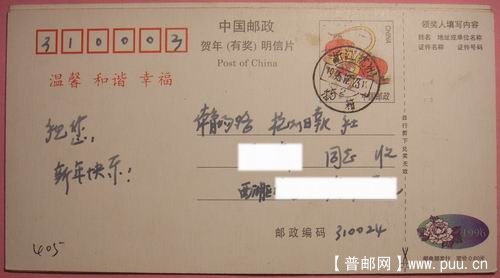 310003
中国邮政
贺年（有奖）明信片
Post of China
CHINA
中国邮政
领奖人填写内容
姓名 地址或单位名称
证件名称 证件号码
温馨 和谐 幸福
祝您:
新年快乐!
日报社
同志 收
邮政编码 310024
自行剪下兑奖无效
1996
405
【普邮网】www.puu.cn